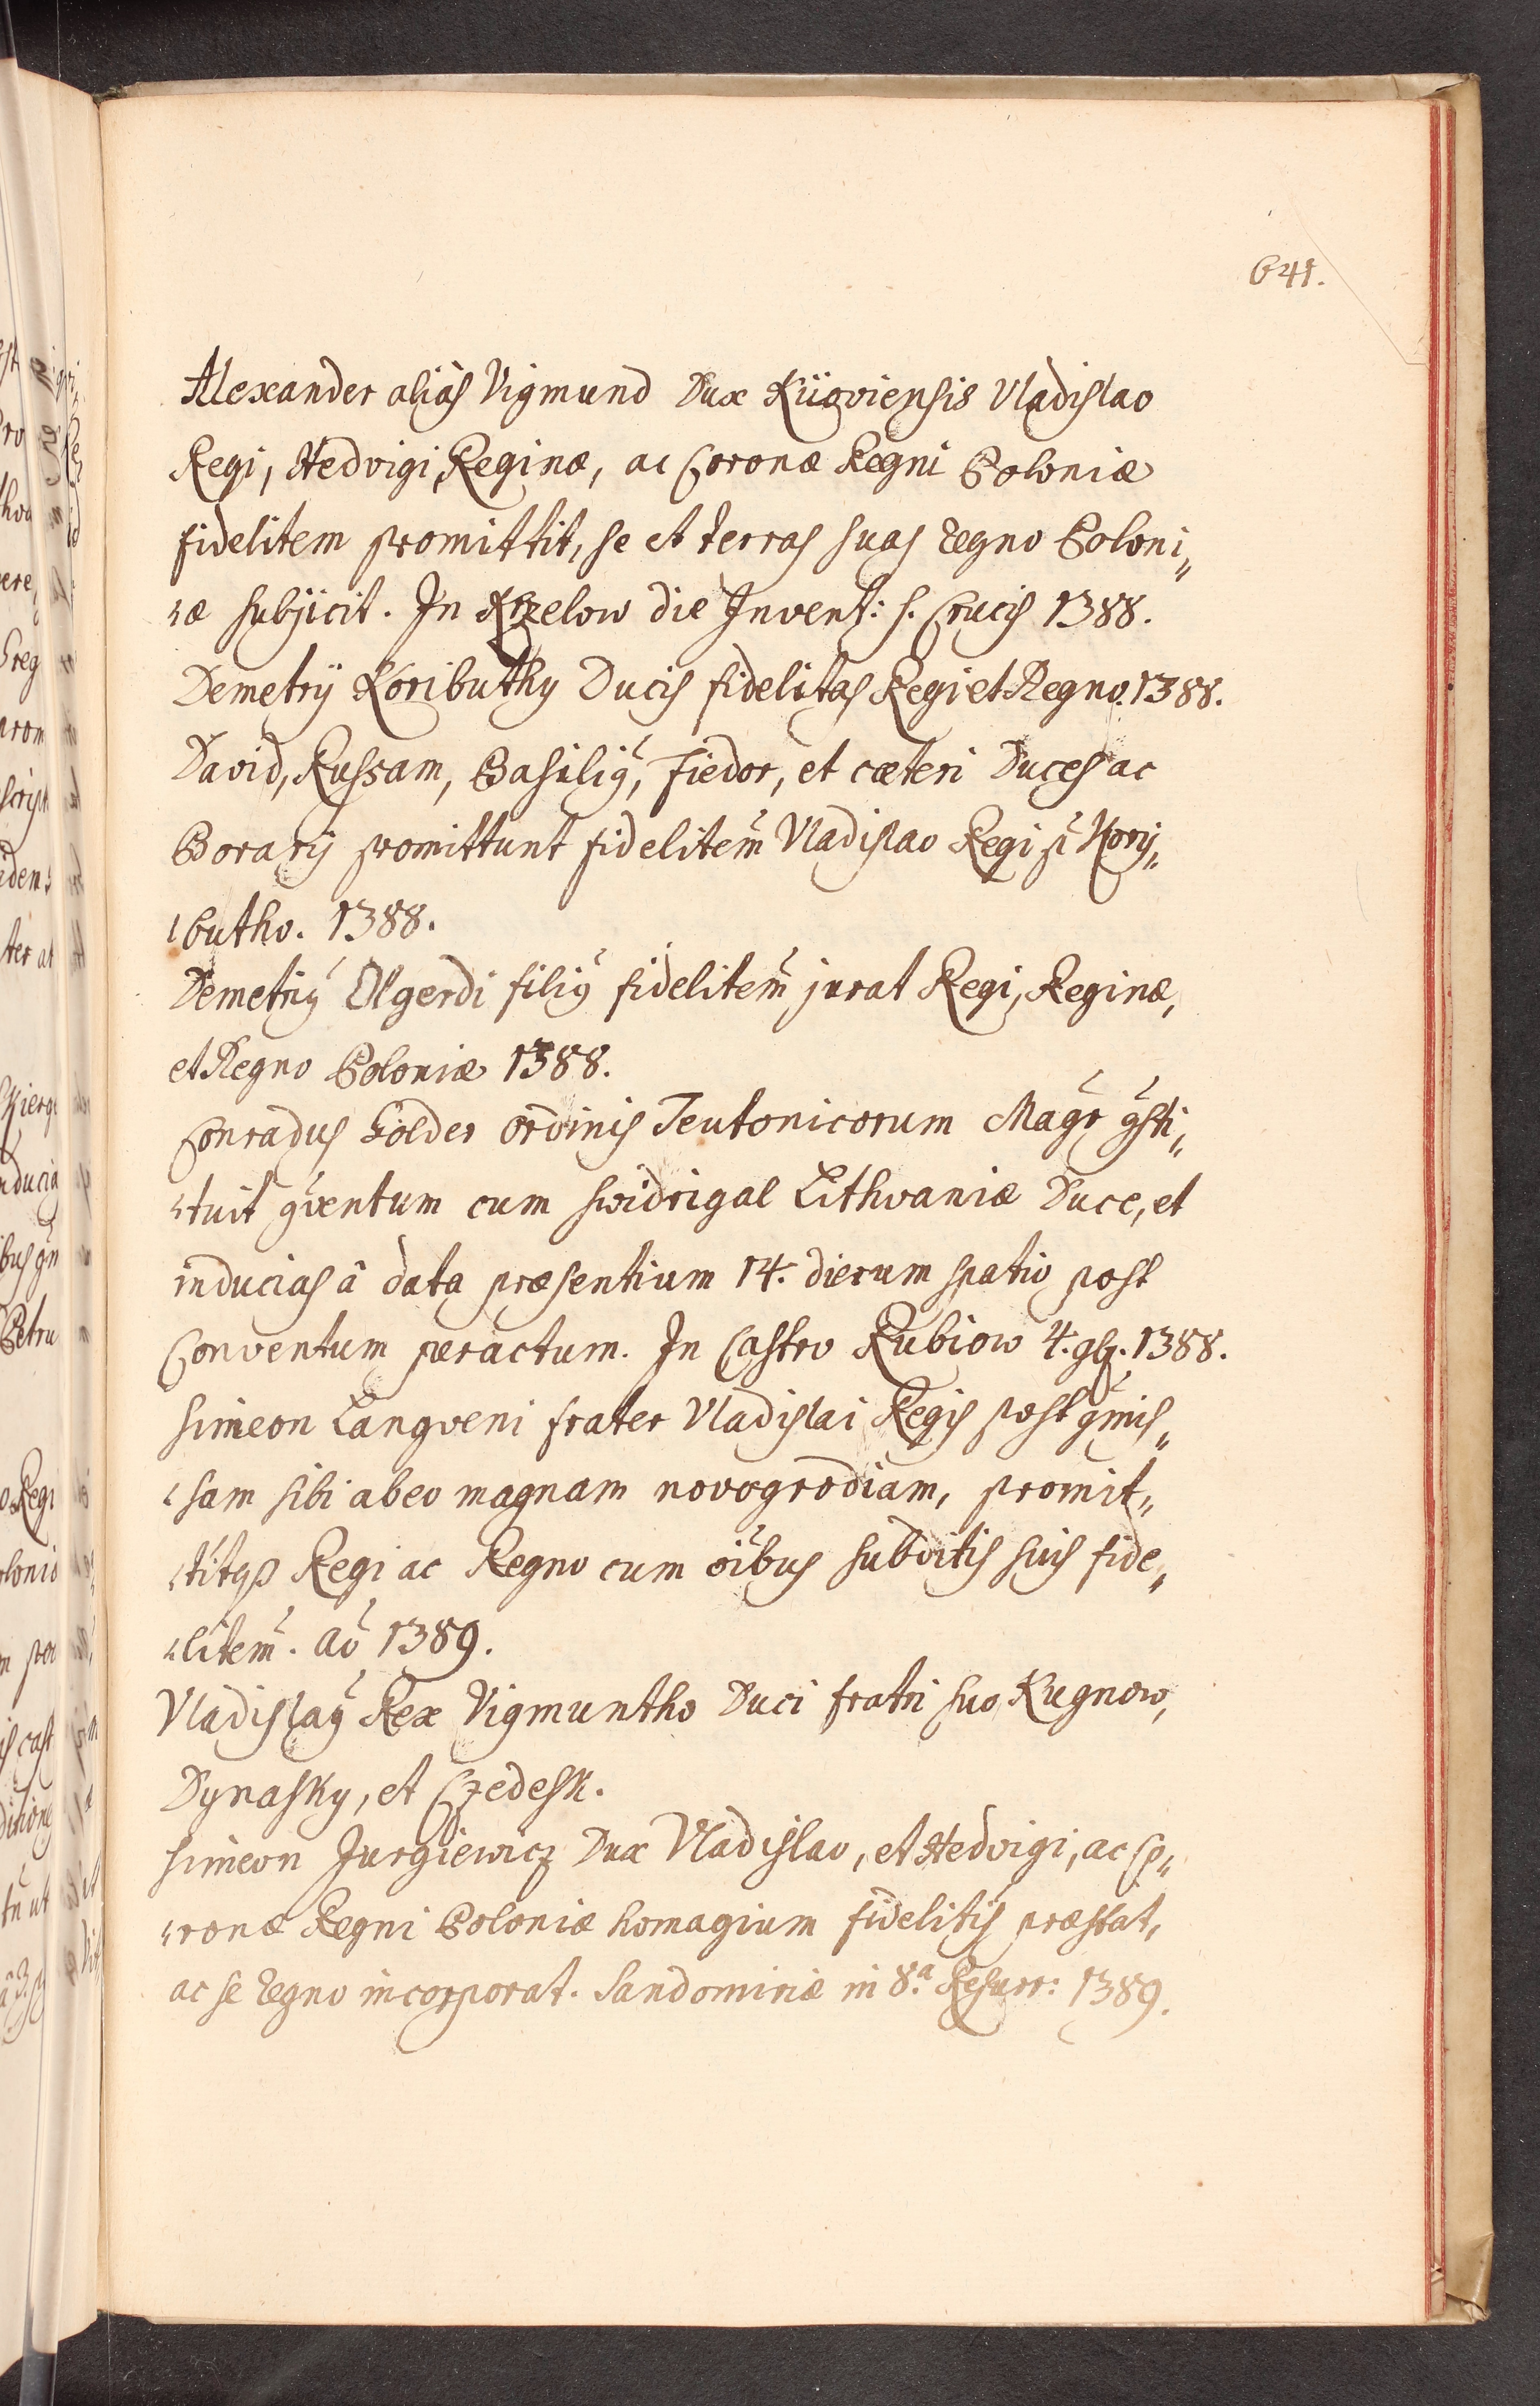 641.
Alexander aliàs Vigmund Dux Kiioviensis Vladislao
Regi, Hedvigi Reginæ, ac Coronæ Regni Poloniæ
fidelitem promittit, se et terras suas Regno Poloni„
„æ subjicit. In Krzelow die Invent: s. Crucis 1388.
Demetrij Koributhy Ducis fidelitas Regi et Regno. 1388.
David, Russam, Basiliꝯ, Fiedor, et cæteri Duces ac
Borarij promittunt fidelitem̃ Vladislao Regi p̃ Kory„
„butho. 1388.
Demetriꝯ Olgerdi filiꝯ fidelitem̃ jurat Regi, Reginæ,
et Regno Poloniæ 1388.
Conradus Golder ordinis Teutonicorum Magr̃ ꝯsti„
„tuit ꝯventum cum swidrigal Lithvaniæ Duce, et
inducias â data præsentium 14. dierum spatio post
Conventum peractum. In Castro Rubiow 4. 9b. 1388.
simeon Langveni frater Vladislai Regis post ꝯmis„
„sam sibi ab eo magnam novogrodiam, promit„
„titqꝫ Regi ac Regno cum oĩbus subditis suis fide„
„litem̃. aõ 1389.
Vladislaꝯ Rex Vigmuntho Duci fratri suo Kugnow,
Dynasky, et Czedesk.
simeon Jurgiewicz Dux Vladislao, et Hedvigi, ac Co„
„ronæ Regni Poloniæ homagium fidelitis præstat,
ac se Regno incorporat. Sandomiriæ in 8.ª Resurr: 1389.